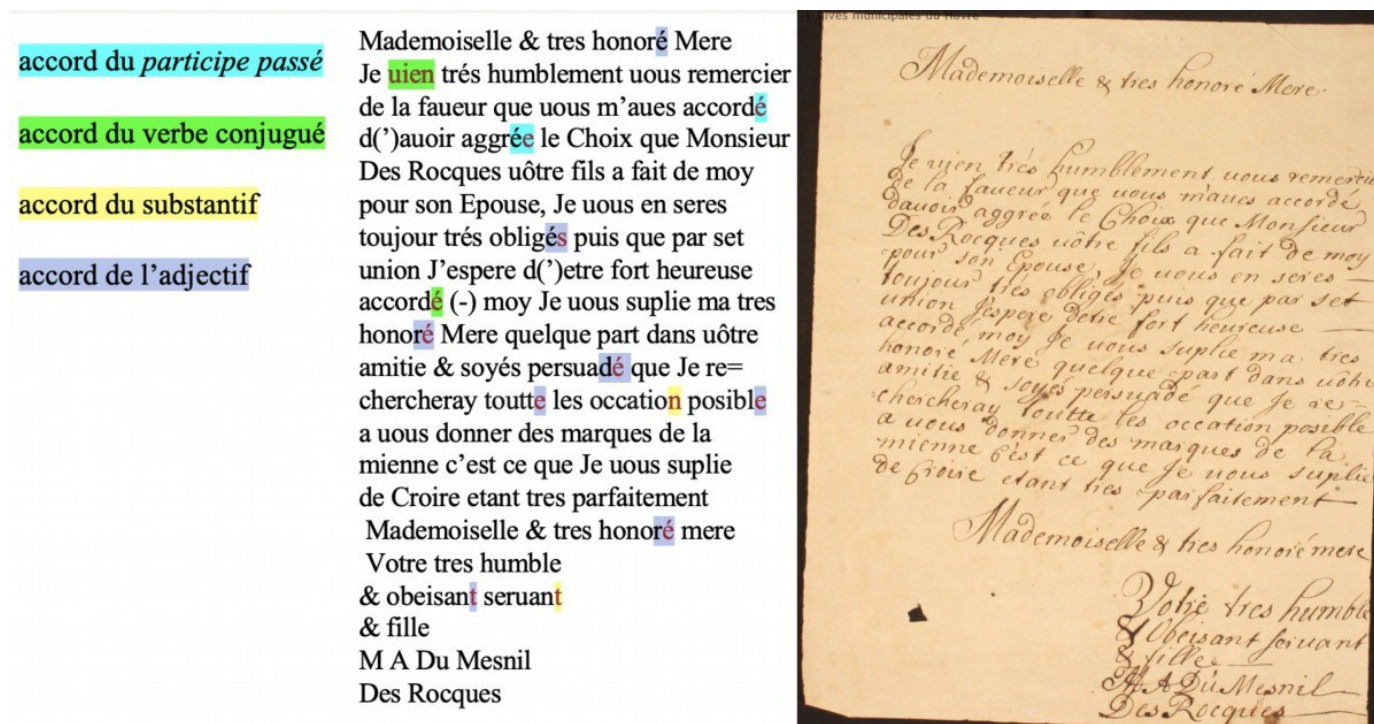 accord du participe passé
accord du verbe conjugué
accord du substantif
accord de l’adjectif
Mademoiselle & tres honoré Mere
Je uien trés humblement uous remercier
de la faueur que uous m’aues accordé
d(’)auoir aggrée le Choix que Monsieur
Des Rocques uôtre fils a fait de moy
pour son Epouse, Je uous en seres
toujour trés obligés puis que par set
union J’espere d(’)etre fort heureuse
accordé (-) moy Je uous suplie ma tres
honoré Mere quelque part dans uôtre
amitie & soyés persuadé que Je re=
chercheray toutte les occation posible
a uous donner des marques de la
mienne c’est ce que Je uous suplie
de Croire etant tres parfaitement
Mademoiselle & tres honoré mere
Votre tres humble
& obeisant seruant
& fille
M A Du Mesnil
Des Rocques
ives municipales du Havre
Mademoiselle & tres honoré Mere
Je uien trés humblement uous remercie
de la faueur que uous m'aues accordé
dauoir aggrée le Choix que Monsieur
Des Rocques uôtre fils a fait de moy
pour son Epouse, Je uous en seres
toujour trés obligés puis que par set
union J'espere detre fort heureuse
accordé, moy Je uous suplie ma tres
honoré Mere quelque part dans uôtre
amitie & soyés persuadé que Je re=
chercheray toutte les occation posible
a uous donner des marques de la
mienne c'est ce que Je uous suplie
de Croire etant tres parfaitement
Mademoiselle & tres honoré mere
Votre tres humble
& Obeisant seruant
& fille
M A Du Mesnil
Des Rocques